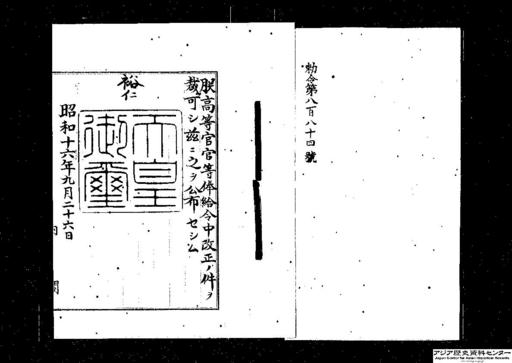 勅令第八百八十四號
朕高等官官等俸給令中改正ノ件ヲ
裁可シ茲ニ之ヲ公布セシム
裕仁
天皇
御璽
昭和十六年九月二十六日
内閣
アジア歴史資料センター
Japan Center for Asian Historical Records